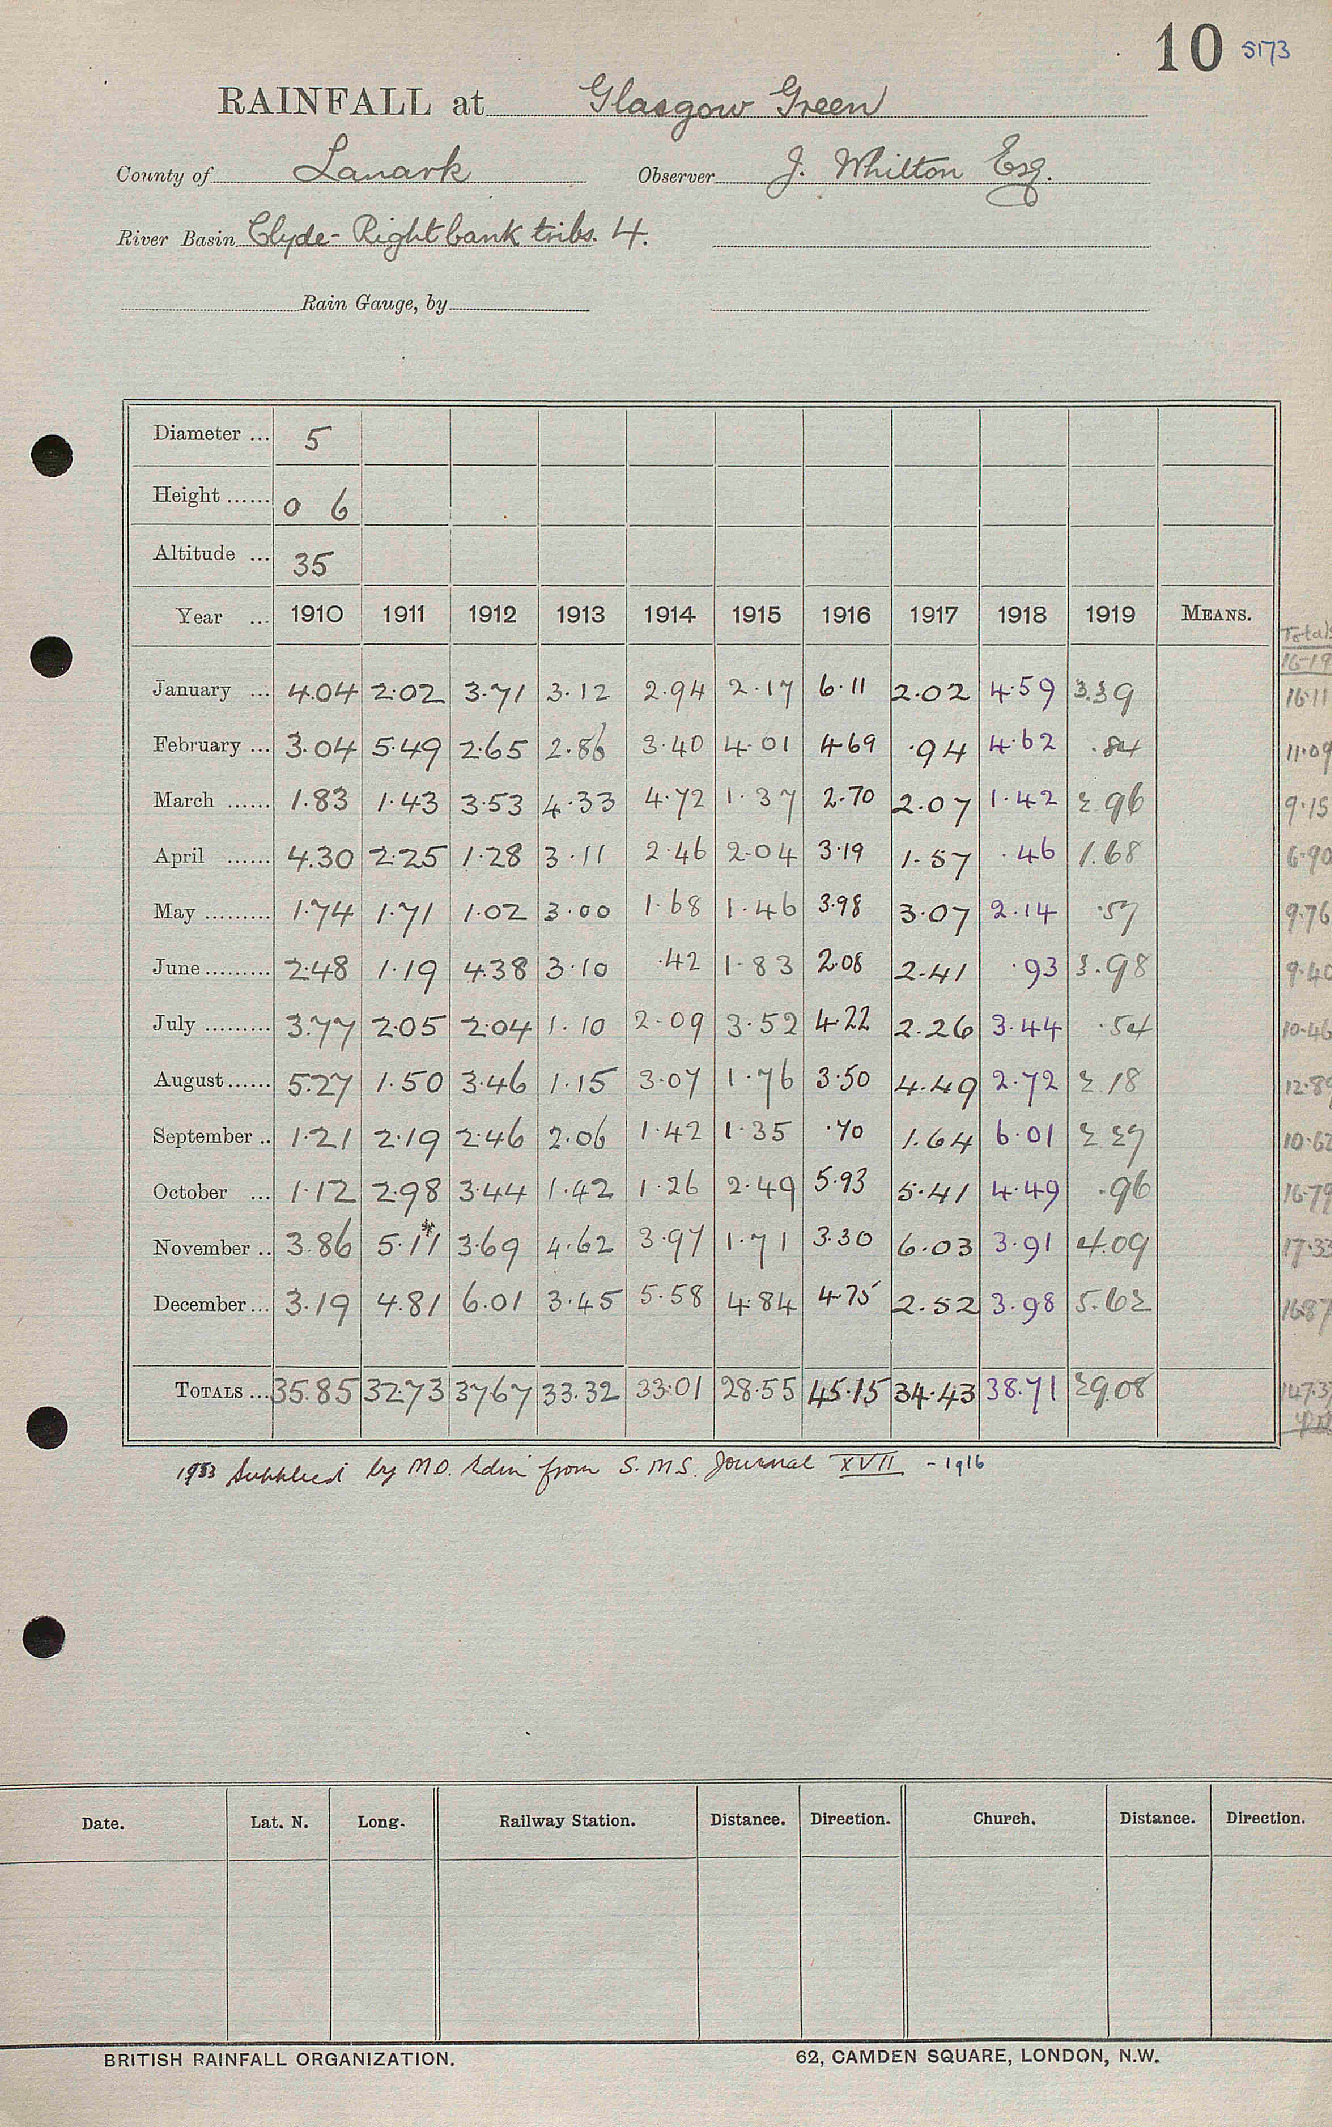 10 5173
RAINFALL at Glasgow Green
County of Lanark Observer J. Whilton Esq.
River Basin Clyde - Right bank tribs. 4.
Rain Gauge, by
Diameter ... 5
Height ...... 0 6
Altitude ... 35
Year ... 1910 1911 1912 1913 1914 1915 1916 1917 1918 1919 MEANS. Totals
16-19
January ... 4.04 2.02 3.71 3.12 2.94 2.17 6.11 2.02 4.59 3.39 16.11
February ... 3.04 5.49 2.65 2.86 3.40 4.01 4.69 .94 4.62 .84 11.09
March ...... 1.83 1.43 3.53 4.33 4.72 1.37 2.70 2.07 1.42 2.96 9.15
April ...... 4.30 2.25 1.28 3.11 2.46 2.04 3.19 1.57 .46 1.68 6.90
May ......... 1.74 1.71 1.02 3.00 1.68 1.46 3.98 3.07 2.14 .57 9.76
June ......... 2.48 1.19 4.38 3.10 .42 1.83 2.08 2.41 .93 3.98 9.40
July ......... 3.77 2.05 2.04 1.10 2.09 3.52 4.22 2.26 3.44 .54 10.46
August ...... 5.27 1.50 3.46 1.15 3.07 1.76 3.50 4.49 2.72 2.18 12.89
September .. 1.21 2.19 2.46 2.06 1.42 1.35 .70 1.64 6.01 2.27 10.62
October ... 1.12 2.98 3.44 1.42 1.26 2.49 5.93 5.41 4.49 .96 16.79
November .. 3.86 5.11* 3.69 4.62 3.97 1.71 3.30 6.03 3.91 4.09 17.33
December ... 3.19 4.81 6.01 3.45 5.58 4.84 4.75 2.52 3.98 5.62 16.87
TOTALS ... 35.85 32.73 37.67 33.32 33.01 28.55 45.15 34.43 38.71 29.08 147.37
1953 Supplied by M.O. Edin from S.M.S. Journal XVII - 1916
Date. Lat. N. Long. Railway Station. Distance. Direction. Church. Distance. Direction.
BRITISH RAINFALL ORGANIZATION. 62, CAMDEN SQUARE, LONDON, N.W.